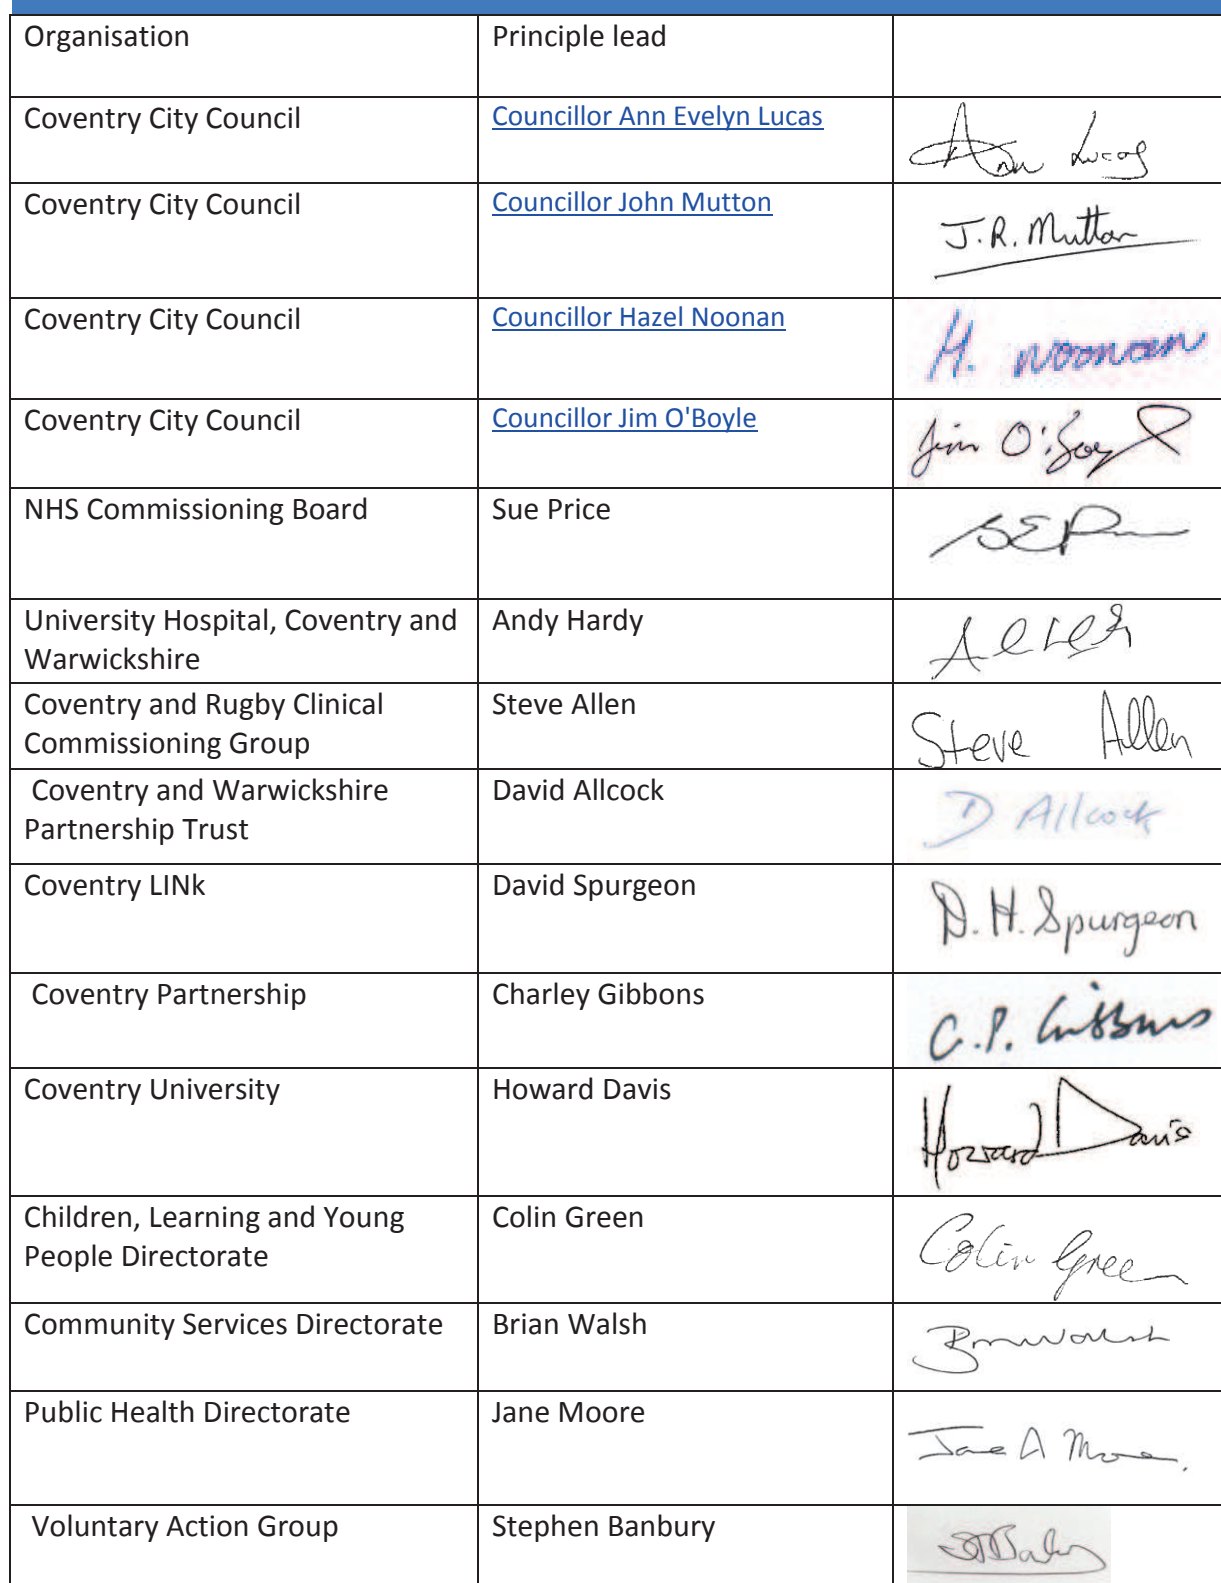 Organisation Principle lead
Coventry City Council Councillor Ann Evelyn Lucas Ann Lucas
Coventry City Council Councillor John Mutton J.R. Mutton
Coventry City Council Councillor Hazel Noonan H. Noonan
Coventry City Council Councillor Jim O'Boyle Jim O'Boyle
NHS Commissioning Board Sue Price
University Hospital, Coventry and Andy Hardy
Warwickshire
Coventry and Rugby Clinical Steve Allen Steve Allen
Commissioning Group
Coventry and Warwickshire David Allcock D Allcock
Partnership Trust
Coventry LINk David Spurgeon D. H. Spurgeon
Coventry Partnership Charley Gibbons C.P. Gibbons
Coventry University Howard Davis Howard Davis
Children, Learning and Young Colin Green Colin Green
People Directorate
Community Services Directorate Brian Walsh
Public Health Directorate Jane Moore Jane A Moore
Voluntary Action Group Stephen Banbury